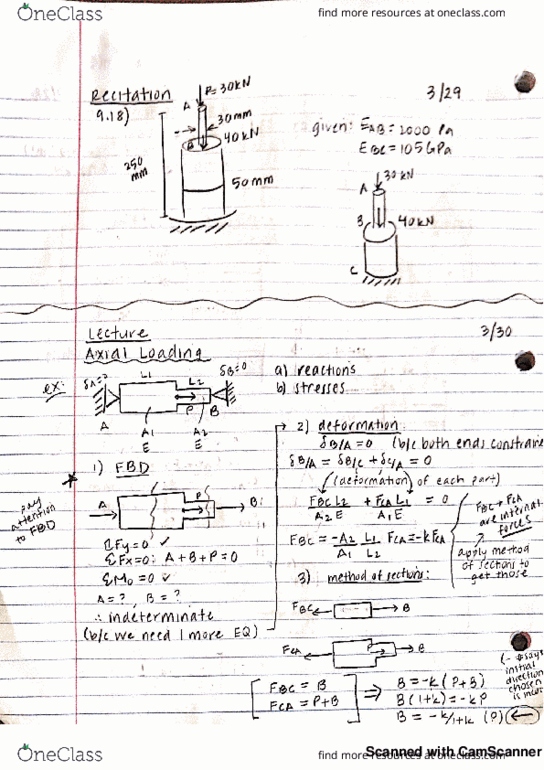 OneClass
find more resources at oneclass.com
Recitation
3/29
9.18)
P=30kN
A
30mm
B
40kN
250
mm
50mm
given: EAB = 200 Pa
EBC = 105 GPa
30 kN
A
B
40kN
C
Lecture
3/30
Axial Loading
ex:
δA=?
L1
L2
δB=0
P
B
A
A1
E
A2
E
a) reactions
b) stresses
1) FBD
pay
attention
to FBD
A
P
B
ΣFy=0 ✓
ΣFx=0: A+B+P=0
ΣMo=0 ✓
A=? , B=?
∴ indeterminate
(b/c we need 1 more EQ)
2) deformation:
δB/A=0 (b/c both ends constraine
δB/A = δB/C + δC/A = 0
(deformation of each part)
FBC L2 / A2 E + FCA L1 / A1 E = 0
FBC = -A2/A1 L1/L2 FCA = -k FCA
FBC + FCA
are internal
forces
apply method
of sections to
get those
3) method of sections:
FBC
B
FCA
B
FBC = B
FCA = P+B
⇒
B = -k (P+B)
B(1+k) = -kP
B = -k/1+k (P) (←)
initial
direction
chosen
is
Scanned with CamScanner
OneClass
find more resources at oneclass.com